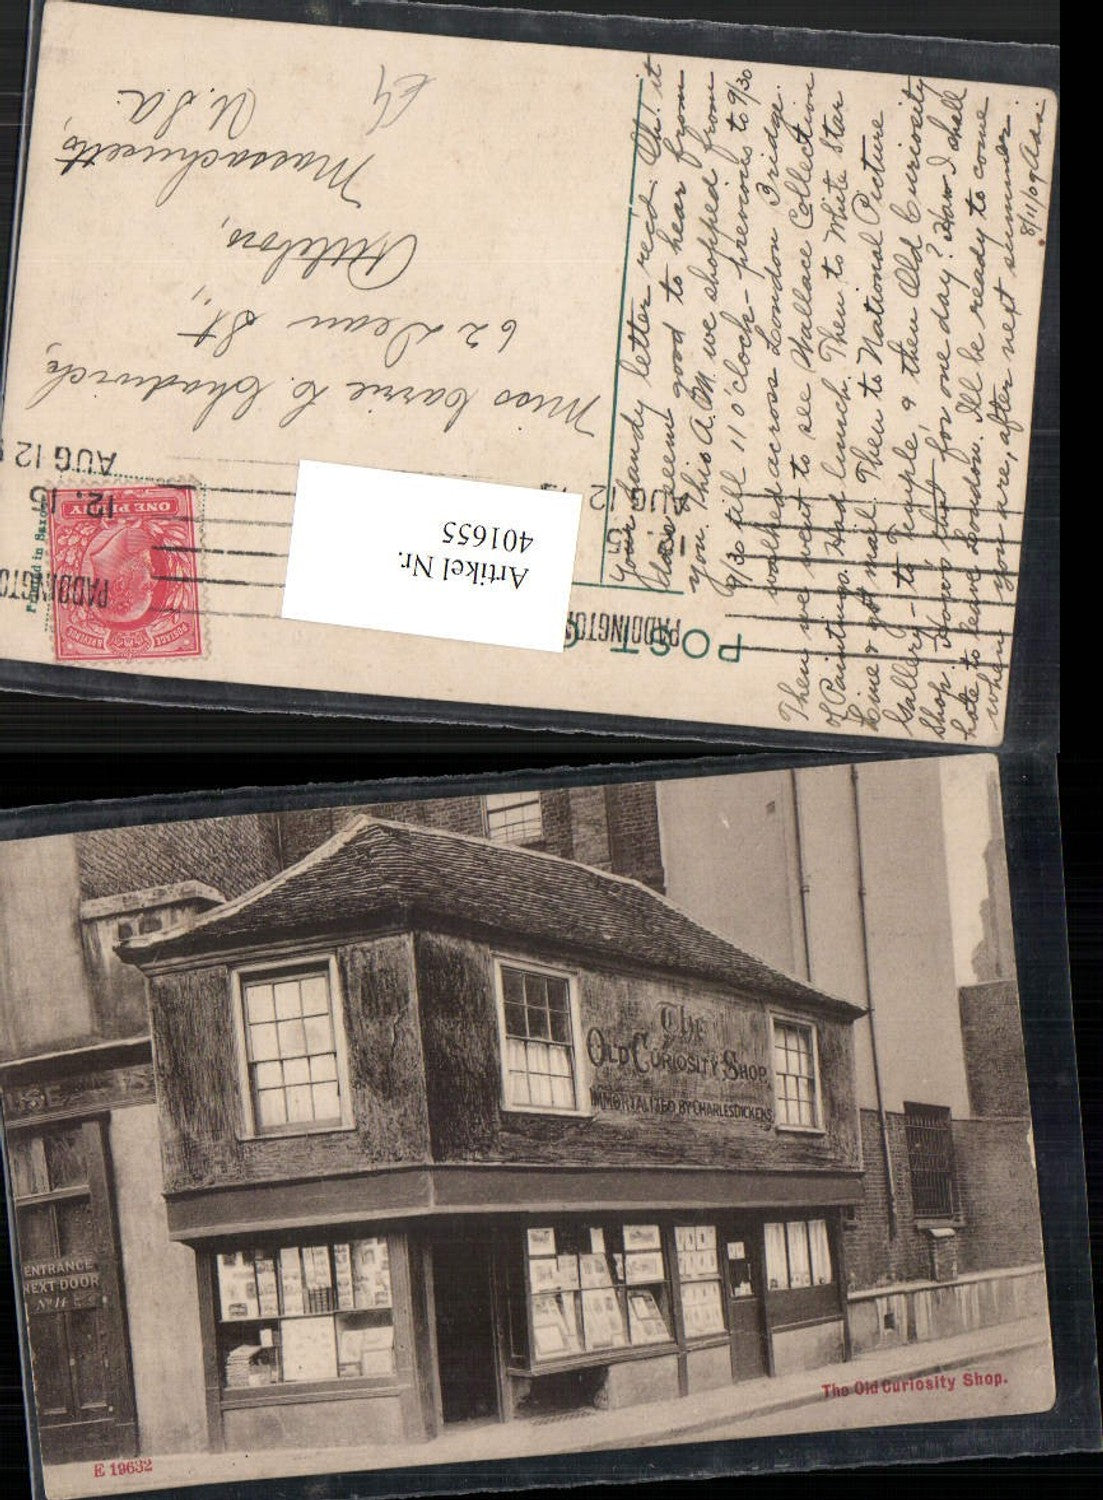 Your handy letter rec'd. Oh! it
does seem good to hear from
you. This A.M. we shopped from
9/30 till 11 o'clock - previous to 9/30
walked across London Bridge.
Then we went to see Wallace Collection
of Paintings. Had lunch. Then to White Star
Line & got mail. Then to National Picture
Gallery - to Temple, & then Old Curiosity
Shop. How's that for one day? How I shall
hate to leave London. I'll be ready to come
when you are, after next summer.
8/11/09 Ada.
POST C
Miss Carrie E. Chadwick,
62 Dean St.,
Attleboro,
Massachusetts,
U.S.A.
Printed in Saxony
POSTAGE REVENUE
ONE PENNY
PADDINGTON
12.15
AUG 12
PADDINGTON
AUG 12
Artikel Nr.
401655
The
Old Curiosity Shop.
IMMORTALIZED BY CHARLES DICKENS
ENTRANCE
NEXT DOOR
No 14
The Old Curiosity Shop.
E 19632